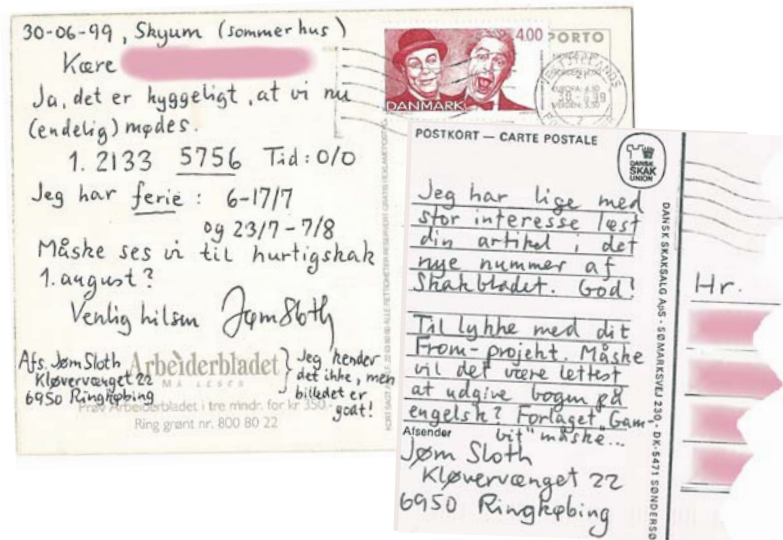 30-06-99, Skyum (sommerhus)
Kære
Ja, det er hyggeligt, at vi nu
(endelig) mødes.
1. 2133 5756 Tid: 0/0
Jeg har ferie: 6-17/7
og 23/7-7/8
Måske ses vi til hurtigskak
1. august?
Venlig hilsen Jørn Sloth
Afs. Jørn Sloth
Kløvervænget 22
6950 Ringkøbing
Arbejderbladet
MÅ LÆSES
Prøv Arbejderbladet i tre mndr. for kr 350.-
Ring grønt nr. 800 80 22
} Jeg kender
det ikke, men
billedet er
godt!
4.00
DANMARK
PORTO
POSTKORT — CARTE POSTALE
DANSK
SKAK
UNION
Jeg har lige med
stor interesse læst
din artikel i det
nye nummer af
Skakbladet. God!
Til lykke med dit
From-projekt. Måske
vil det være lettest
at udgive bogen på
engelsk? Forlaget „Gam-
bit" måske...
Afsender
Jørn Sloth
Kløvervænget 22
6950 Ringkøbing
DANSK SKAKSALG ApS - SØMARKSVEJ 230 - DK-5471 SØNDERSØ
Hr.